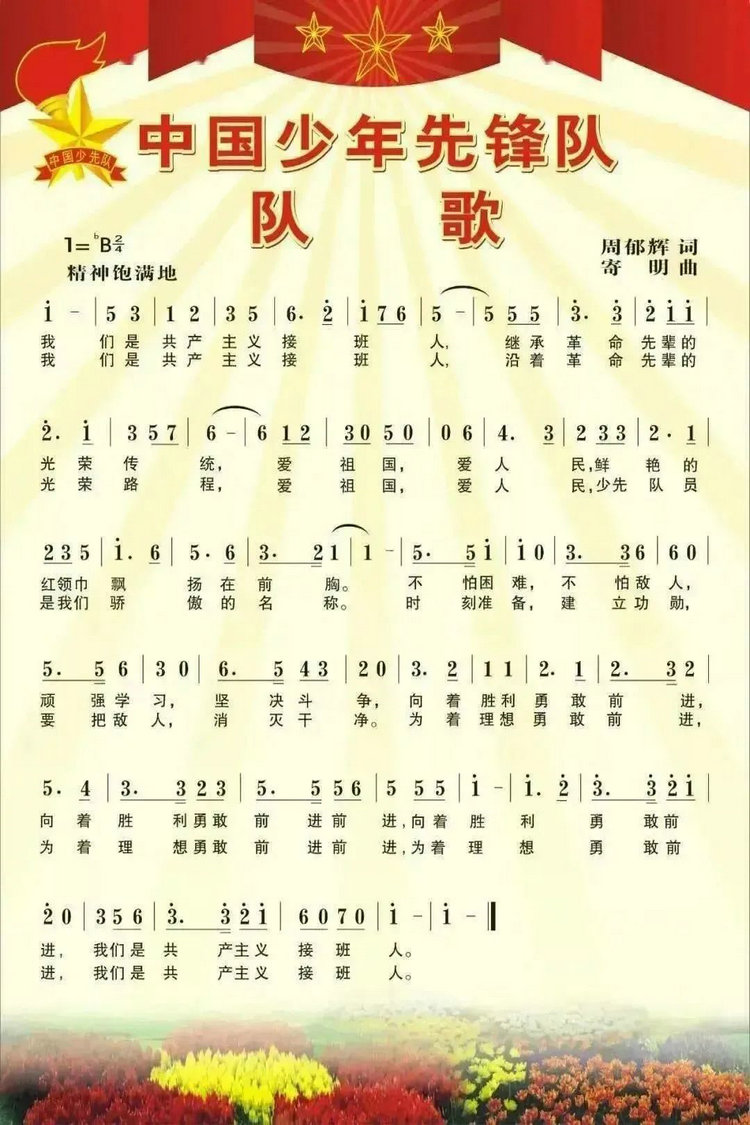 中国少先队
中国少年先锋队
队 歌
1=♭B2/4
周郁辉 词
精神饱满地
寄 明 曲
i̇ - | 5 3 | 1 2 | 3 5 | 6. 2̇ | i̇ 7 6 | 5 - | 5 5 5 | 3̇. 3̇ | 2̇ i̇ i̇ |
我 们是 共产 主义 接 班 人, 继承 革 命 先辈的
我 们是 共产 主义 接 班 人, 沿着 革 命 先辈的
2̇. i̇ | 3 5 7 | 6 - | 6 1 2 | 3 0 5 0 | 0 6 | 4. 3 | 2 3 3 | 2. 1 |
光 荣 传 统, 爱 祖 国, 爱 人 民,鲜 艳 的
光 荣 路 程, 爱 祖 国, 爱 人 民,少先 队 员
2 3 5 | i̇. 6 | 5. 6 | 3. 2 1 | 1 - | 5. 5 i̇ | i̇ 0 | 3. 3 6 | 6 0 |
红领巾 飘 扬 在 前 胸。 不 怕困 难, 不 怕敌 人,
是我们 骄 傲 的 名 称。 时 刻准 备, 建 立功 勋,
5. 5 6 | 3 0 | 6. 5 4 3 | 2 0 | 3. 2 | 1 1 | 2. 1 | 2. 3 2 |
顽 强学 习, 坚 决斗 争, 向 着 胜利 勇 敢 前 进,
要 把敌 人, 消 灭干 净。 为 着 理想 勇 敢 前 进,
5. 4 | 3. 3 2 3 | 5. 5 5 6 | 5 5 5 | i̇ - | i̇. 2̇ | 3̇. 3̇ 2̇ i̇ |
向 着 胜 利勇敢 前 进前 进,向着 胜 利 勇 敢前
为 着 理 想勇敢 前 进前 进,为着 理 想 勇 敢前
2̇ 0 | 3 5 6 | 3̇. 3̇ 2̇ i̇ | 6 0 7 0 | i̇ - | i̇ - ‖
进, 我们是 共 产主义 接 班 人。
进, 我们是 共 产主义 接 班 人。